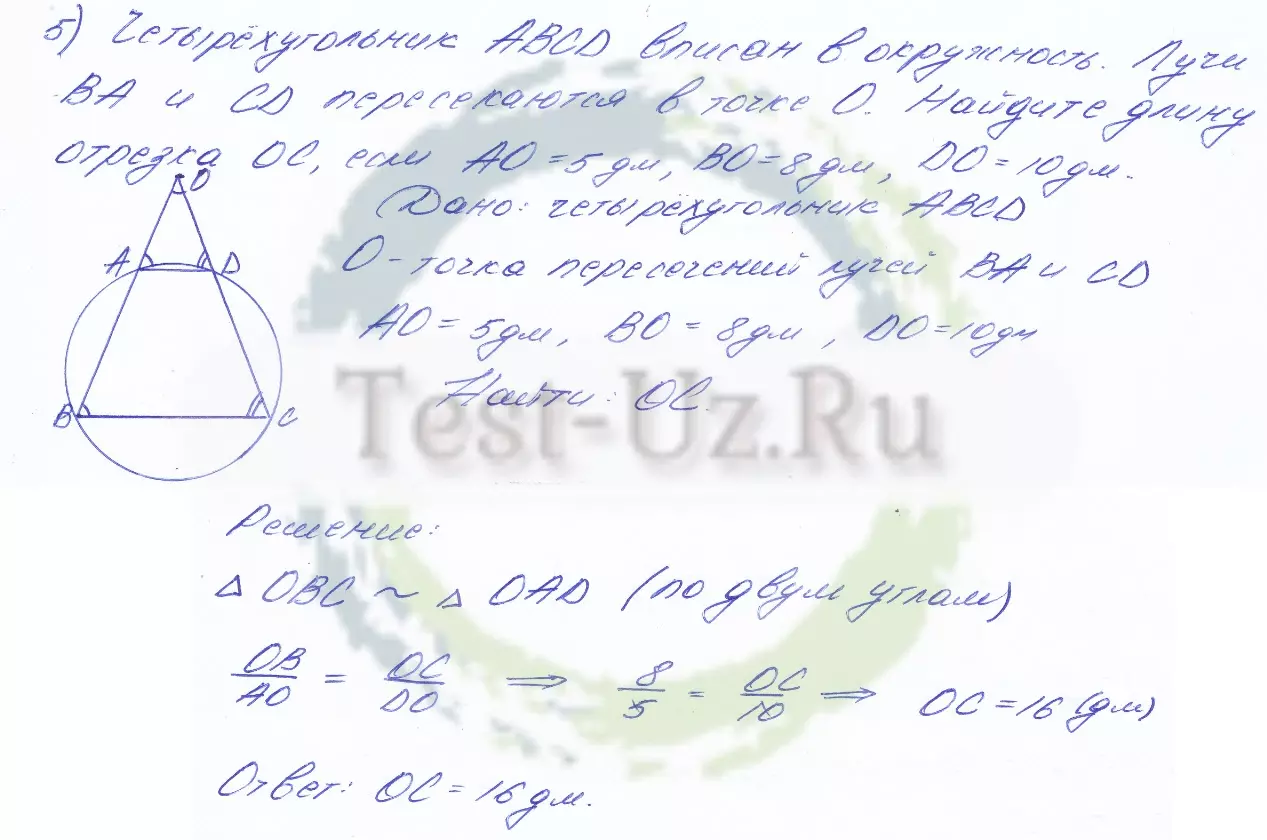 5) Четырёхугольник ABCD вписан в окружность. Лучи
BA и CD пересекаются в точке O. Найдите длину
отрезка OC, если AO = 5 дм, BO = 8 дм, DO = 10 дм.
O
Дано: четырёхугольник ABCD
A D
O - точка пересечений лучей BA и CD
AO = 5 дм, BO = 8 дм, DO = 10 дм
Найти: OC.
B C
Test-Uz.Ru
Решение:
△ OBC ~ △ OAD (по двум углам)
OB/AO = OC/DO ⇒ 8/5 = OC/10 ⇒ OC = 16 (дм)
Ответ: OC = 16 дм.